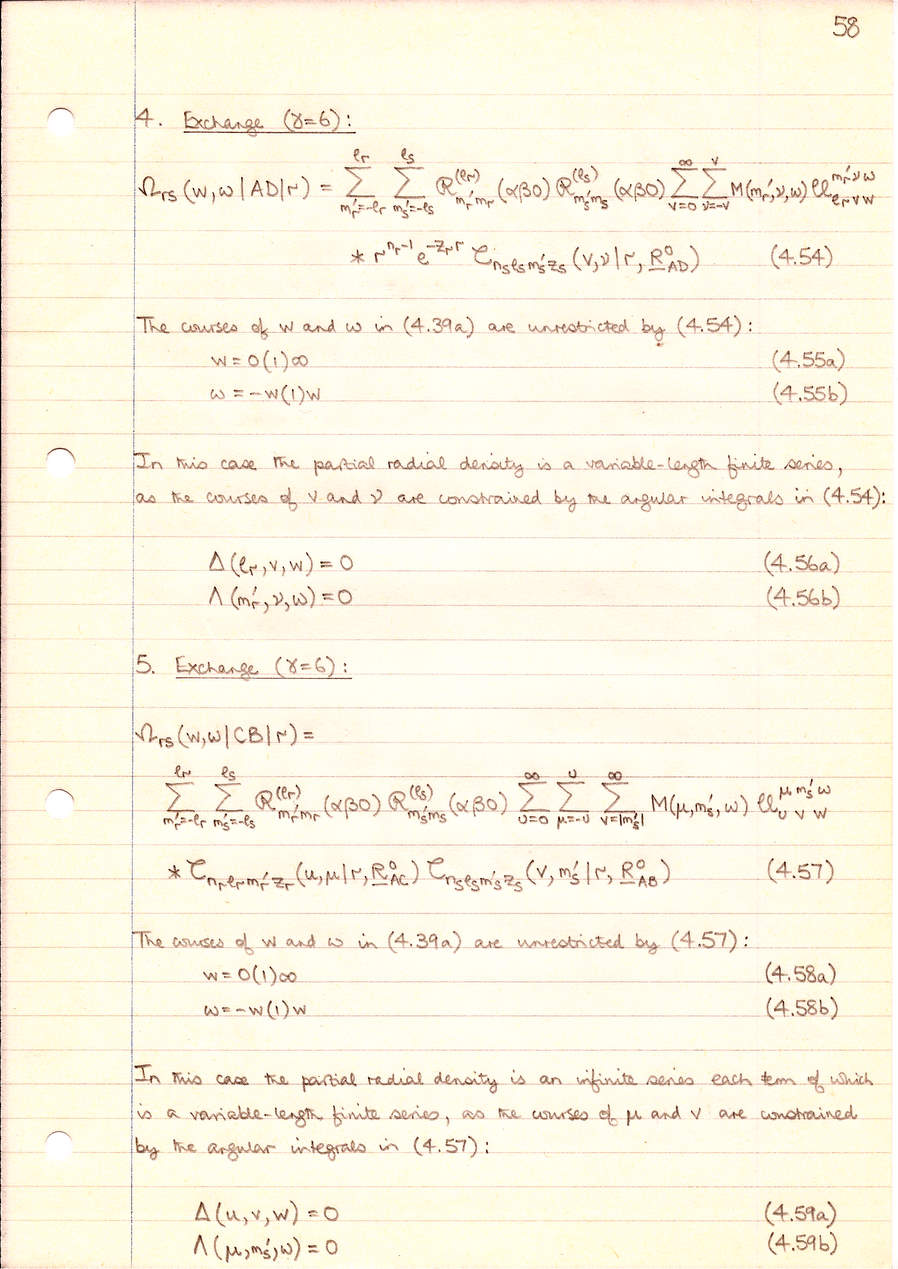 58
4. Exchange (γ=6):
Ω_rs (w, ω | AD | r) = Σ_{m_r'=-ℓ_r}^{ℓ_r} Σ_{m_s'=-ℓ_s}^{ℓ_s} R_{m_r'm_r}^{(ℓ_r)} (αβ0) R_{m_s'm_s}^{(ℓ_s)} (αβ0) Σ_{v=0}^{∞} Σ_{ν=-v}^{v} M(m_r', ν, ω) U_{ℓ_r v w}^{m_r' ν ω}
* r^{n_r-1} e^{-z_r r} C_{n_s ℓ_s m_s' z_s} (v, ν | r, R_AD^0) (4.54)
The courses of w and ω in (4.39a) are unrestricted by (4.54):
w = 0(1)∞ (4.55a)
ω = -w(1)w (4.55b)
In this case the partial radial density is a variable-length finite series,
as the courses of v and ν are constrained by the angular integrals in (4.54):
Δ(ℓ_r, v, w) = 0 (4.56a)
Λ(m_r', ν, ω) = 0 (4.56b)
5. Exchange (γ=6):
Ω_rs (w, ω | CB | r) =
Σ_{m_r'=-ℓ_r}^{ℓ_r} Σ_{m_s'=-ℓ_s}^{ℓ_s} R_{m_r'm_r}^{(ℓ_r)} (αβ0) R_{m_s'm_s}^{(ℓ_s)} (αβ0) Σ_{u=0}^{∞} Σ_{μ=-u}^{u} Σ_{v=|m_s'|}^{∞} M(μ, m_s', ω) U_{u v w}^{μ m_s' ω}
* C_{n_r ℓ_r m_r' z_r} (u, μ | r, R_AC^0) C_{n_s ℓ_s m_s' z_s} (v, m_s' | r, R_AB^0) (4.57)
The courses of w and ω in (4.39a) are unrestricted by (4.57):
w = 0(1)∞ (4.58a)
ω = -w(1)w (4.58b)
In this case the partial radial density is an infinite series each term of which
is a variable-length finite series, as the courses of μ and v are constrained
by the angular integrals in (4.57):
Δ(u, v, w) = 0 (4.59a)
Λ(μ, m_s', ω) = 0 (4.59b)